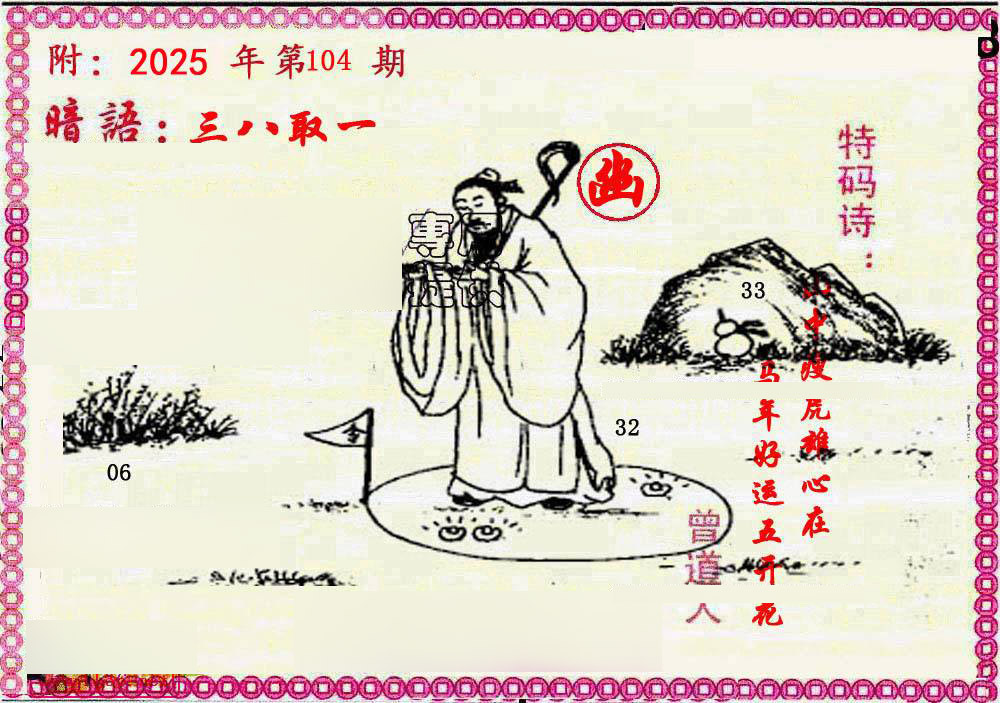 附：2025 年第104 期
暗語：三八取一
幽
特码诗：
中
心在
马年好运五开花
曾道人
33
32
06
令